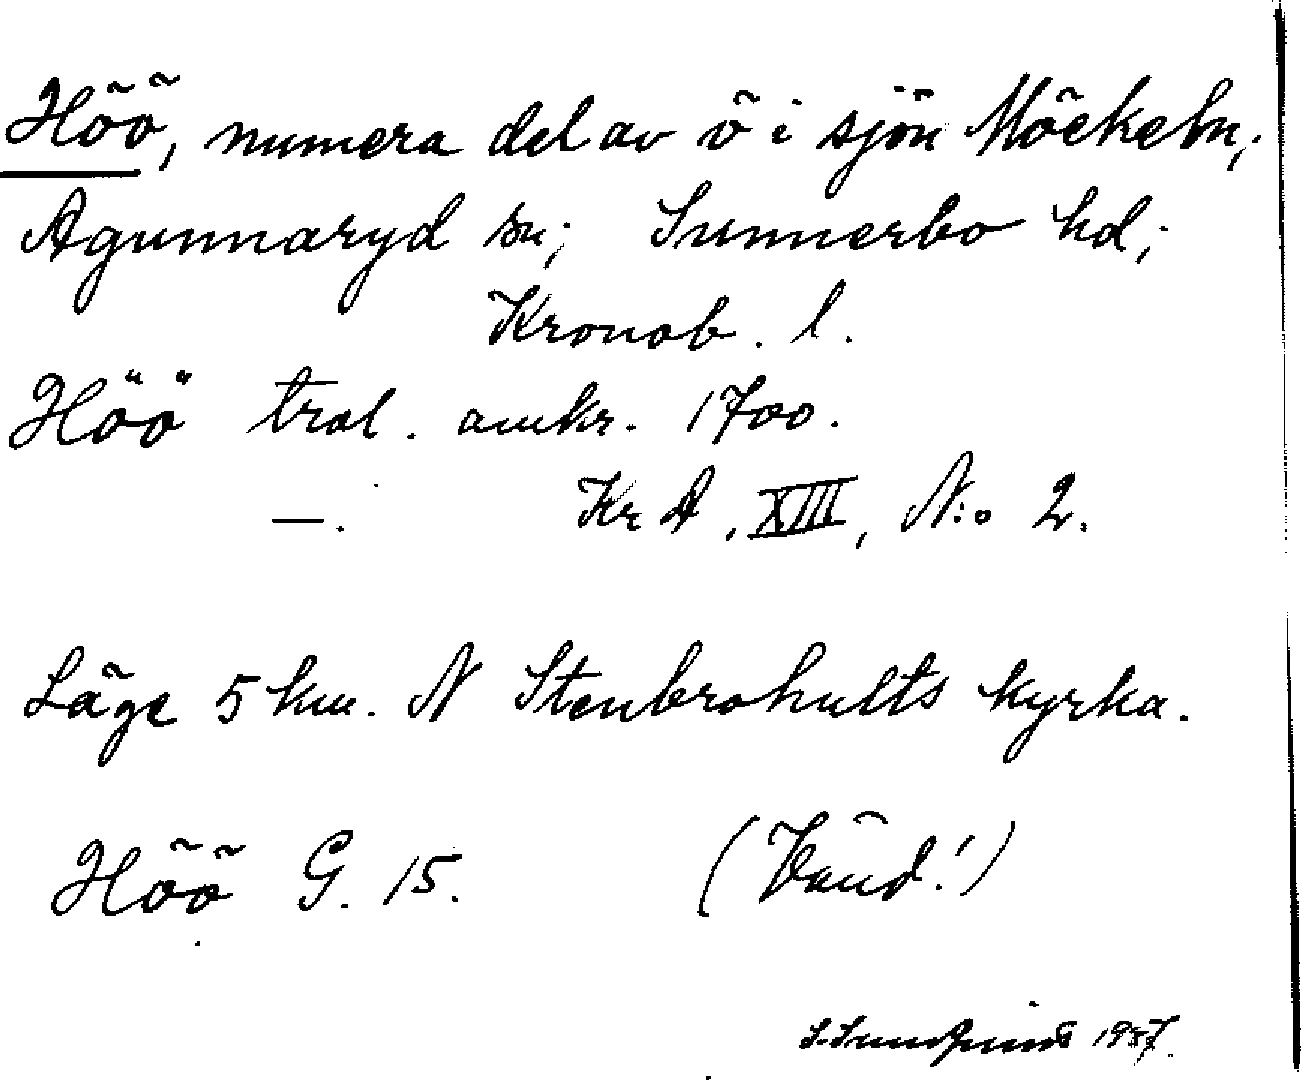 Höö, numera del av ö i sjön Möckeln,
Agunnaryd sn; Sunnerbo hd;
Kronob. l.
Höö tral. omkr. 1700.
—. Kr A, XIII, N:o 2.
Läge 5 km. N Stenbrohults kyrka.
Höö G. 15. (Vänd!)
1937.